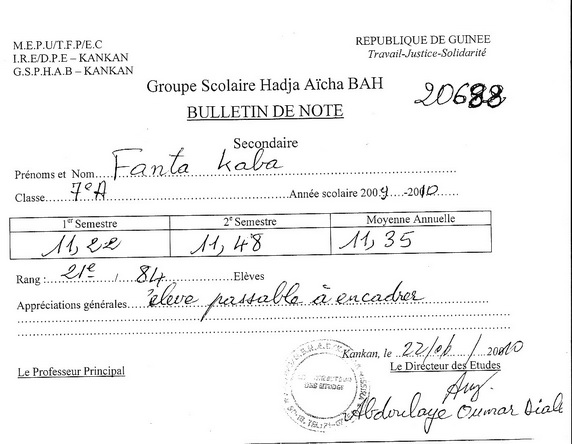 M.E.P.U/T.F.P/E.C
REPUBLIQUE DE GUINEE
I.RE/D.P.E – KANKAN
Travail-Justice-Solidarité
G.S.P.H.A.B – KANKAN
Groupe Scolaire Hadja Aïcha BAH
20688
BULLETIN DE NOTE
Secondaire
Prénoms et Nom Fanta Kaba
Classe 7e A Année scolaire 2009-2010
1er Semestre 2e Semestre Moyenne Annuelle
11,22 11,48 11,35
Rang : 21e / 84 Elèves
Appréciations générales élève passable à encadrer
Kankan, le 22/ / 2010
Le Professeur Principal
Le Directeur des Etudes
Abdoulaye Oumar Diale